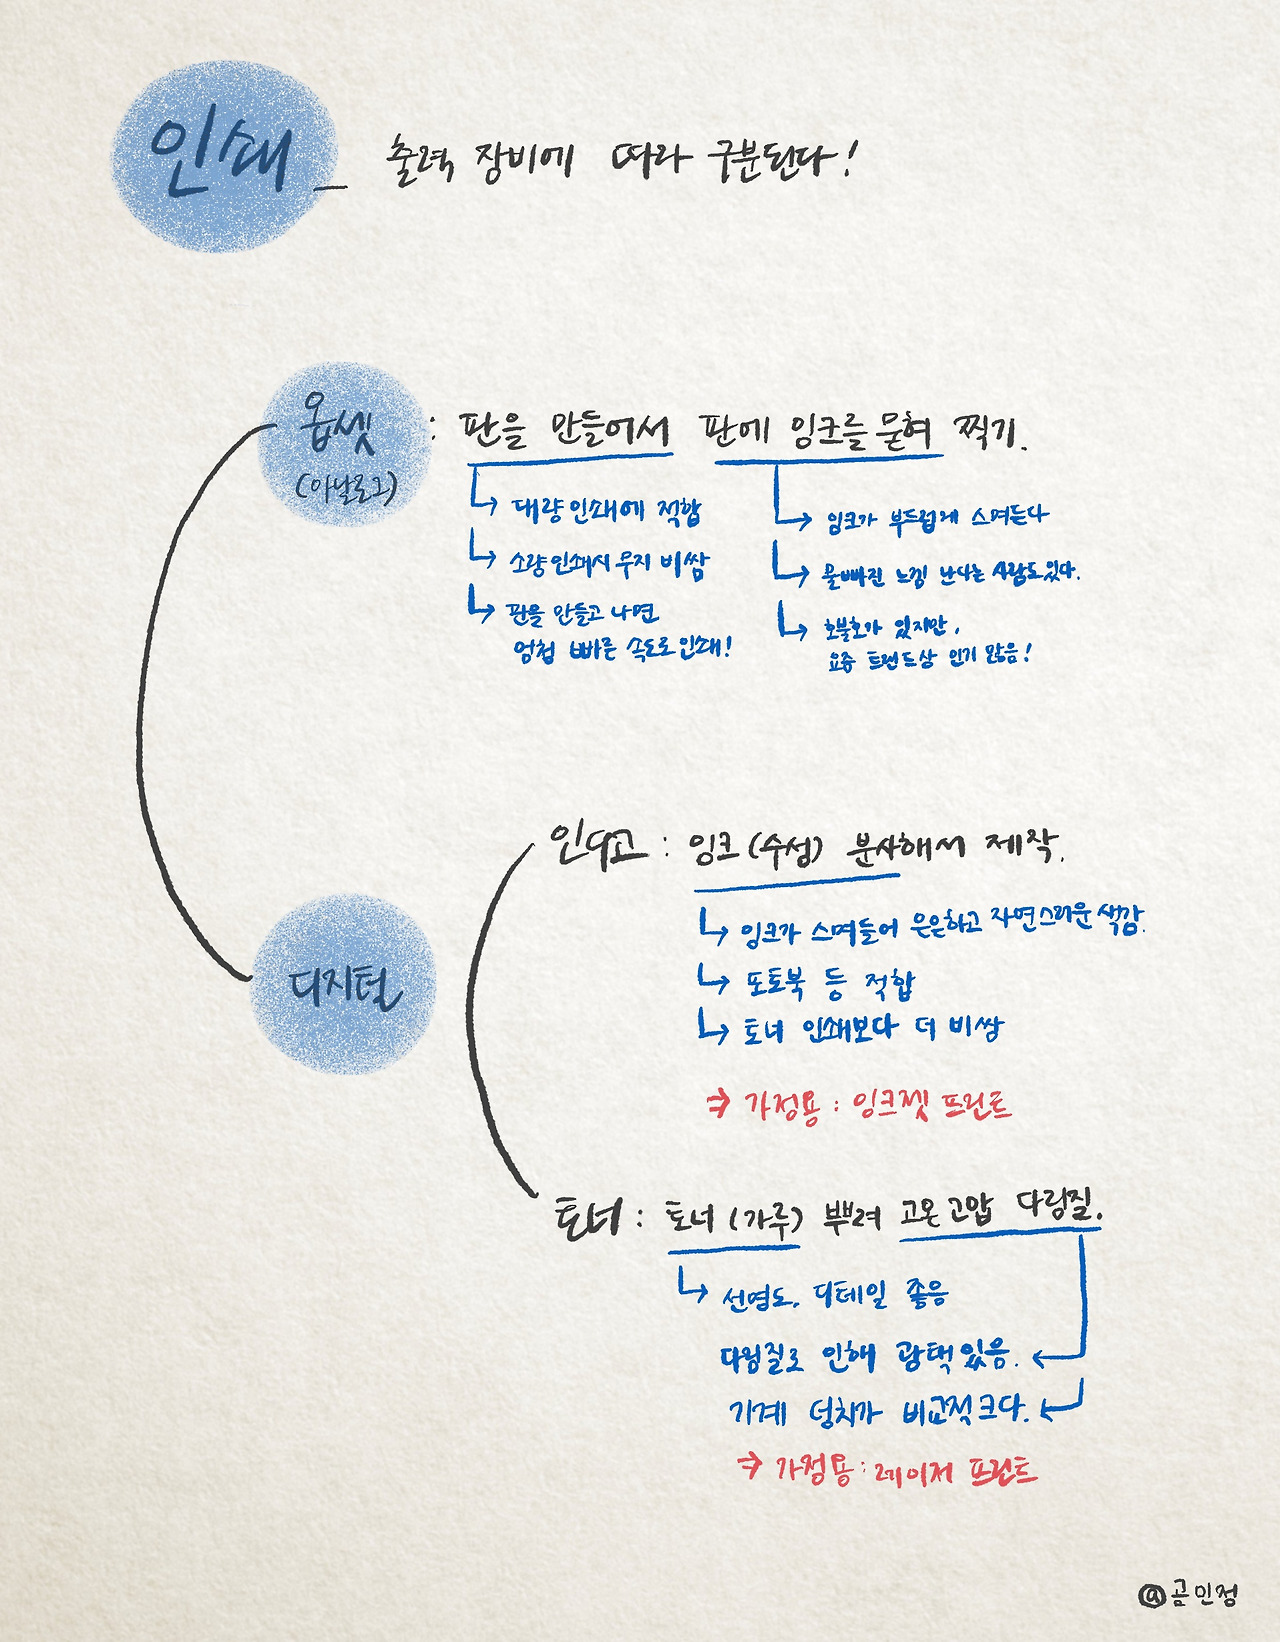 인쇄_ 출력 장비에 따라 구분된다!
옵셋
(아날로그)
: 판을 만들어서 판에 잉크를 묻혀 찍기.
대량인쇄에 적합
소량인쇄시 무지 비쌈
판을 만들고 나면
엄청 빠른 속도로 인쇄!
잉크가 부드럽게 스며든다
물빠진 느낌 난다는 사람도 있다.
호불호가 있지만,
요즘 트렌드상 인기 많음!
디지털
인디고 : 잉크(수성) 분사해서 제작.
잉크가 스며들어 은은하고 자연스러운 색감.
포토북 등 적합
토너 인쇄보다 더 비쌈
⇒ 가정용 : 잉크젯 프린트
토너 : 토너(가루) 뿌려 고온고압 다림질.
선명도, 디테일 좋음
다림질로 인해 광택있음.
기계 덩치가 비교적 크다.
⇒ 가정용 : 레이저 프린트
@곰민정